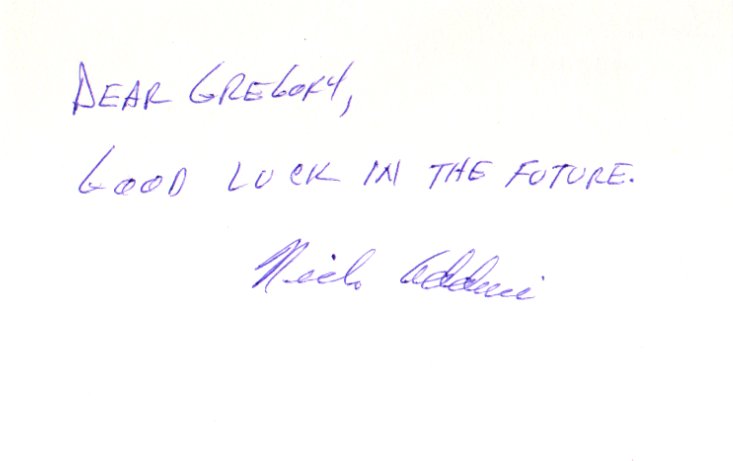 DEAR GREGORY,
GOOD LUCK IN THE FUTURE.
Nick